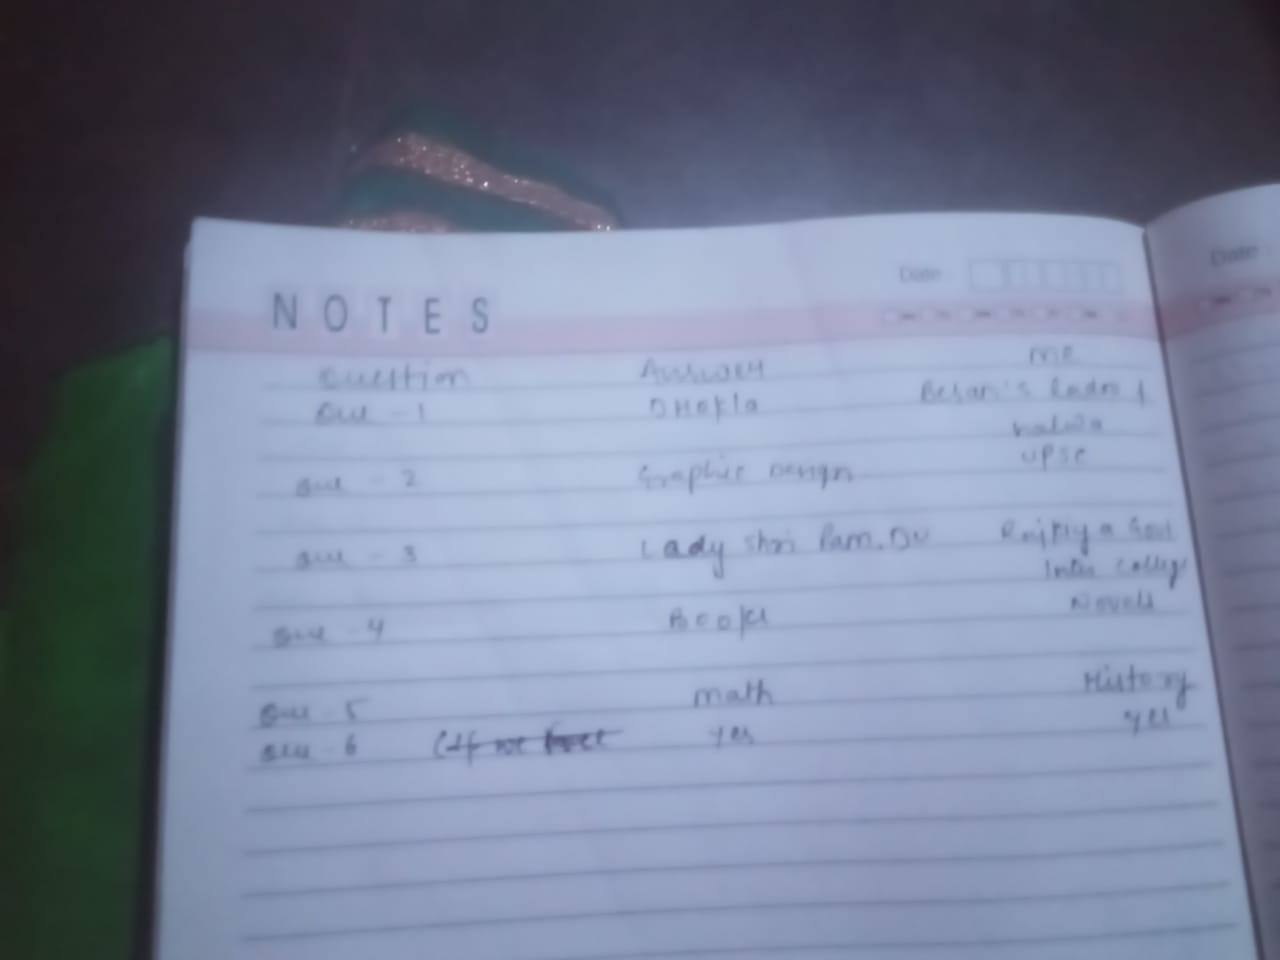 Date
Date
NOTES
Question Answer me
Que - 1 Dhokla Besan's Ladoo &
halwa
Que - 2 Graphic Design UPSC
Que - 3 Lady Shri Ram. DU Rajkiya Govt
Inter College
Que - 4 Books Novels
Que - 5 math History
Que - 6 yes yes